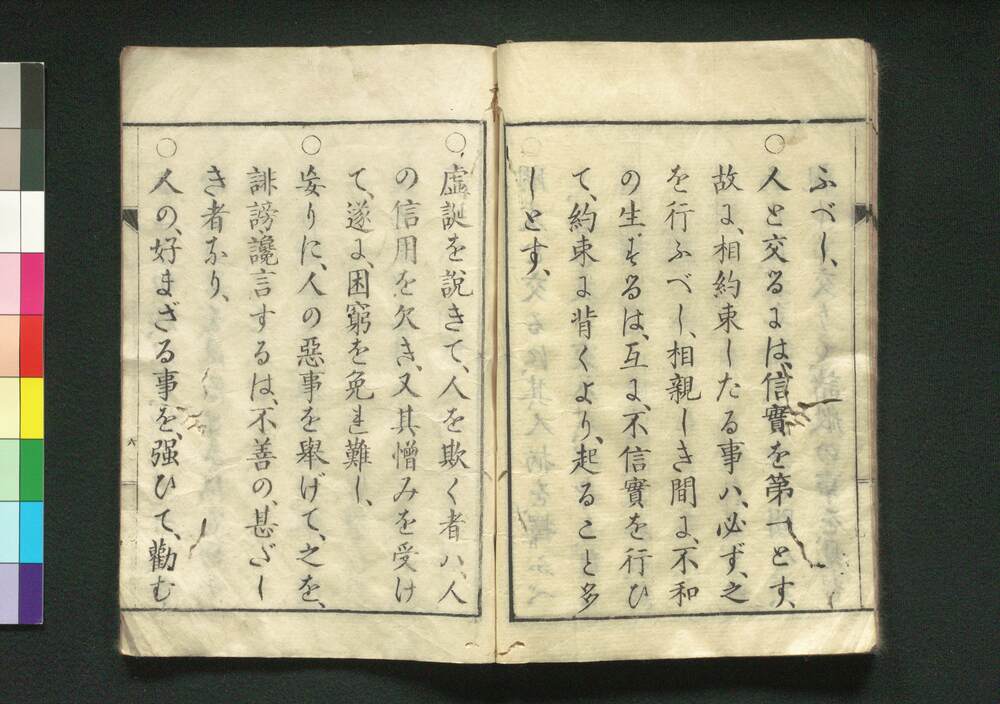 ふべし、
○人と交るには、信實を第一とす、
故に、相約束したる事ハ、必ず、之
を行ふべし、相親しき間に、不和
の生ずるは、互に、不信實を行ひ
て、約束に背くより、起ること多
しとす、
○虛誕を説きて、人を欺く者ハ、人
の信用を欠き、又其憎みを受け
て、遂に、困窮を免れ難し、
○妄りに、人の惡事を擧げて、之を、
誹謗讒言するは、不善の、甚だし
き者なり、
○人の、好まざる事を、强ひて、勸む
六